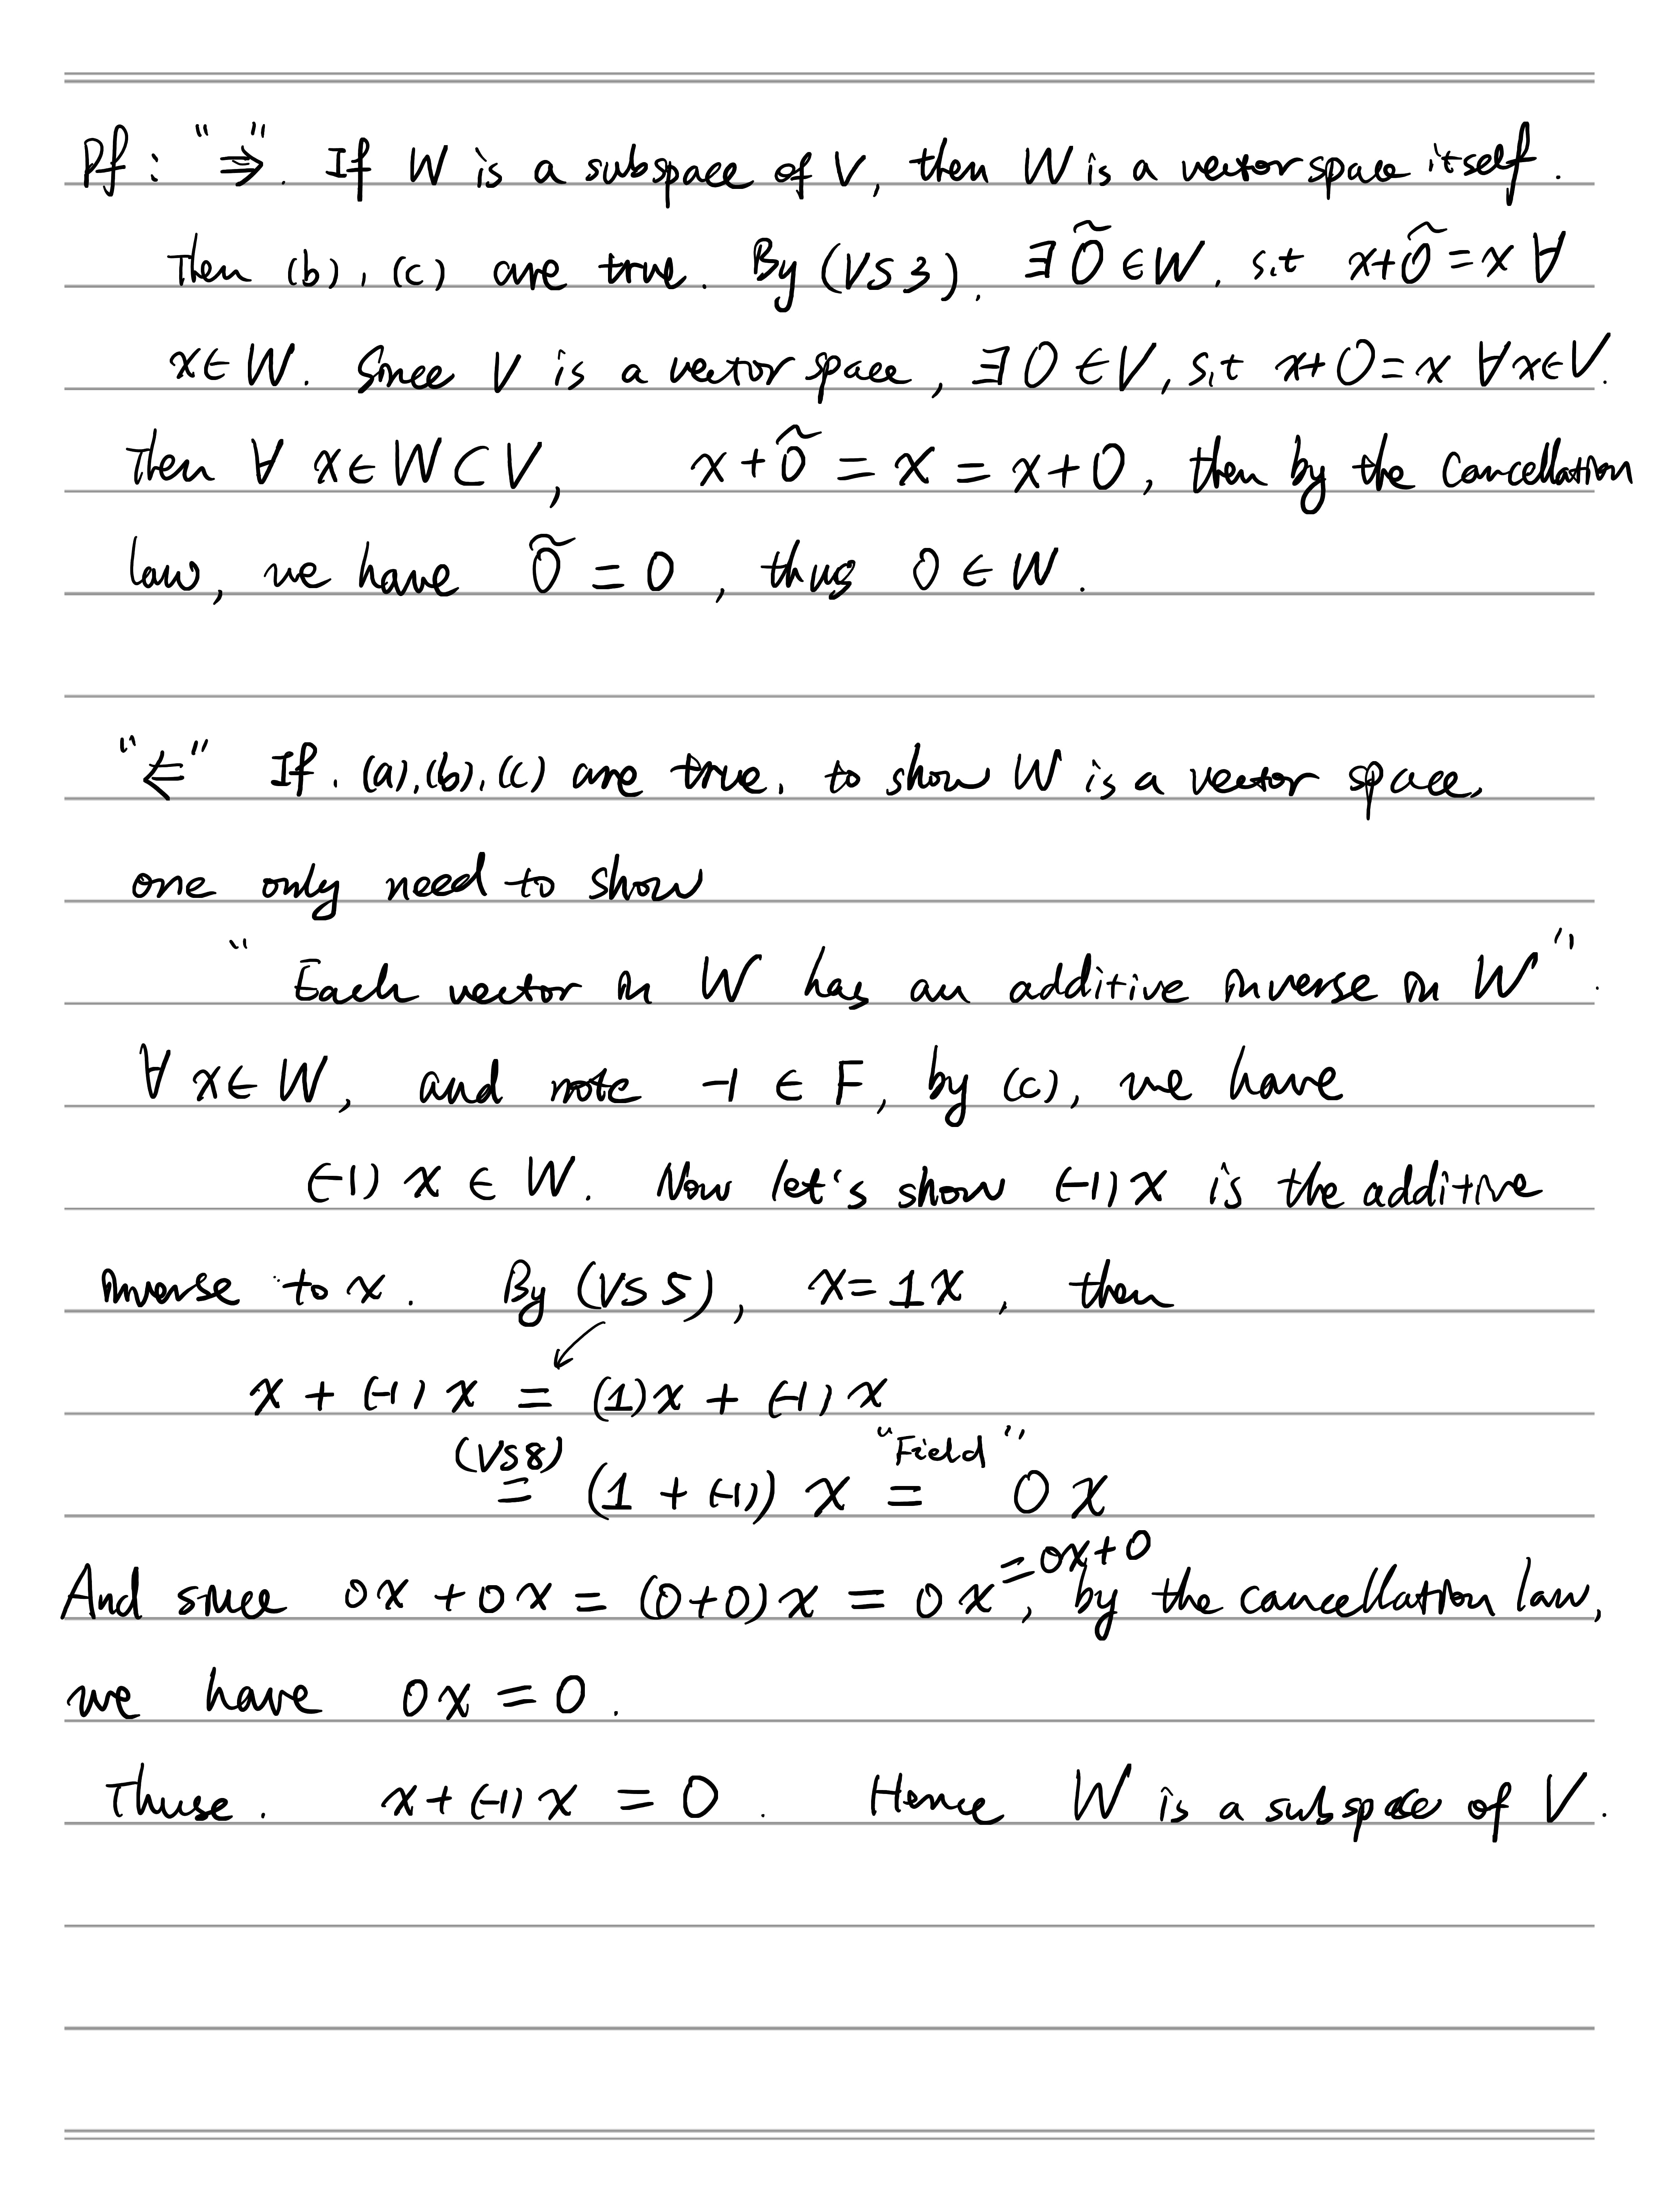 Pf : "⇒". If W is a subspace of V, then W is a vector space itself.
Then (b), (c) are true. By (VS 3), ∃ 0̃ ∈ W, s.t x+0̃ = x ∀
x ∈ W. Since V is a vector space, ∃ 0 ∈ V, s.t x+0 = x ∀x∈V.
Then ∀ x ∈ W ⊂ V, x + 0̃ = x = x+0, then by the cancellation
law, we have 0̃ = 0, thus 0 ∈ W.
"⇐" If, (a), (b), (c) are true, to show W is a vector space,
one only need to show
" Each vector in W has an additive inverse in W ".
∀ x ∈ W, and note -1 ∈ F, by (c), we have
(-1) x ∈ W. Now let's show (-1) x is the additive
inverse to x. By (VS 5), x = 1x, then
x + (-1) x = (1)x + (-1) x
(VS8) "Field"
= (1 + (-1)) x = 0 x
And since 0x + 0x = (0+0) x = 0x = 0x+0, by the cancellation law,
we have 0x = 0.
Thuse. x + (-1) x = 0. Hence W is a subspace of V.